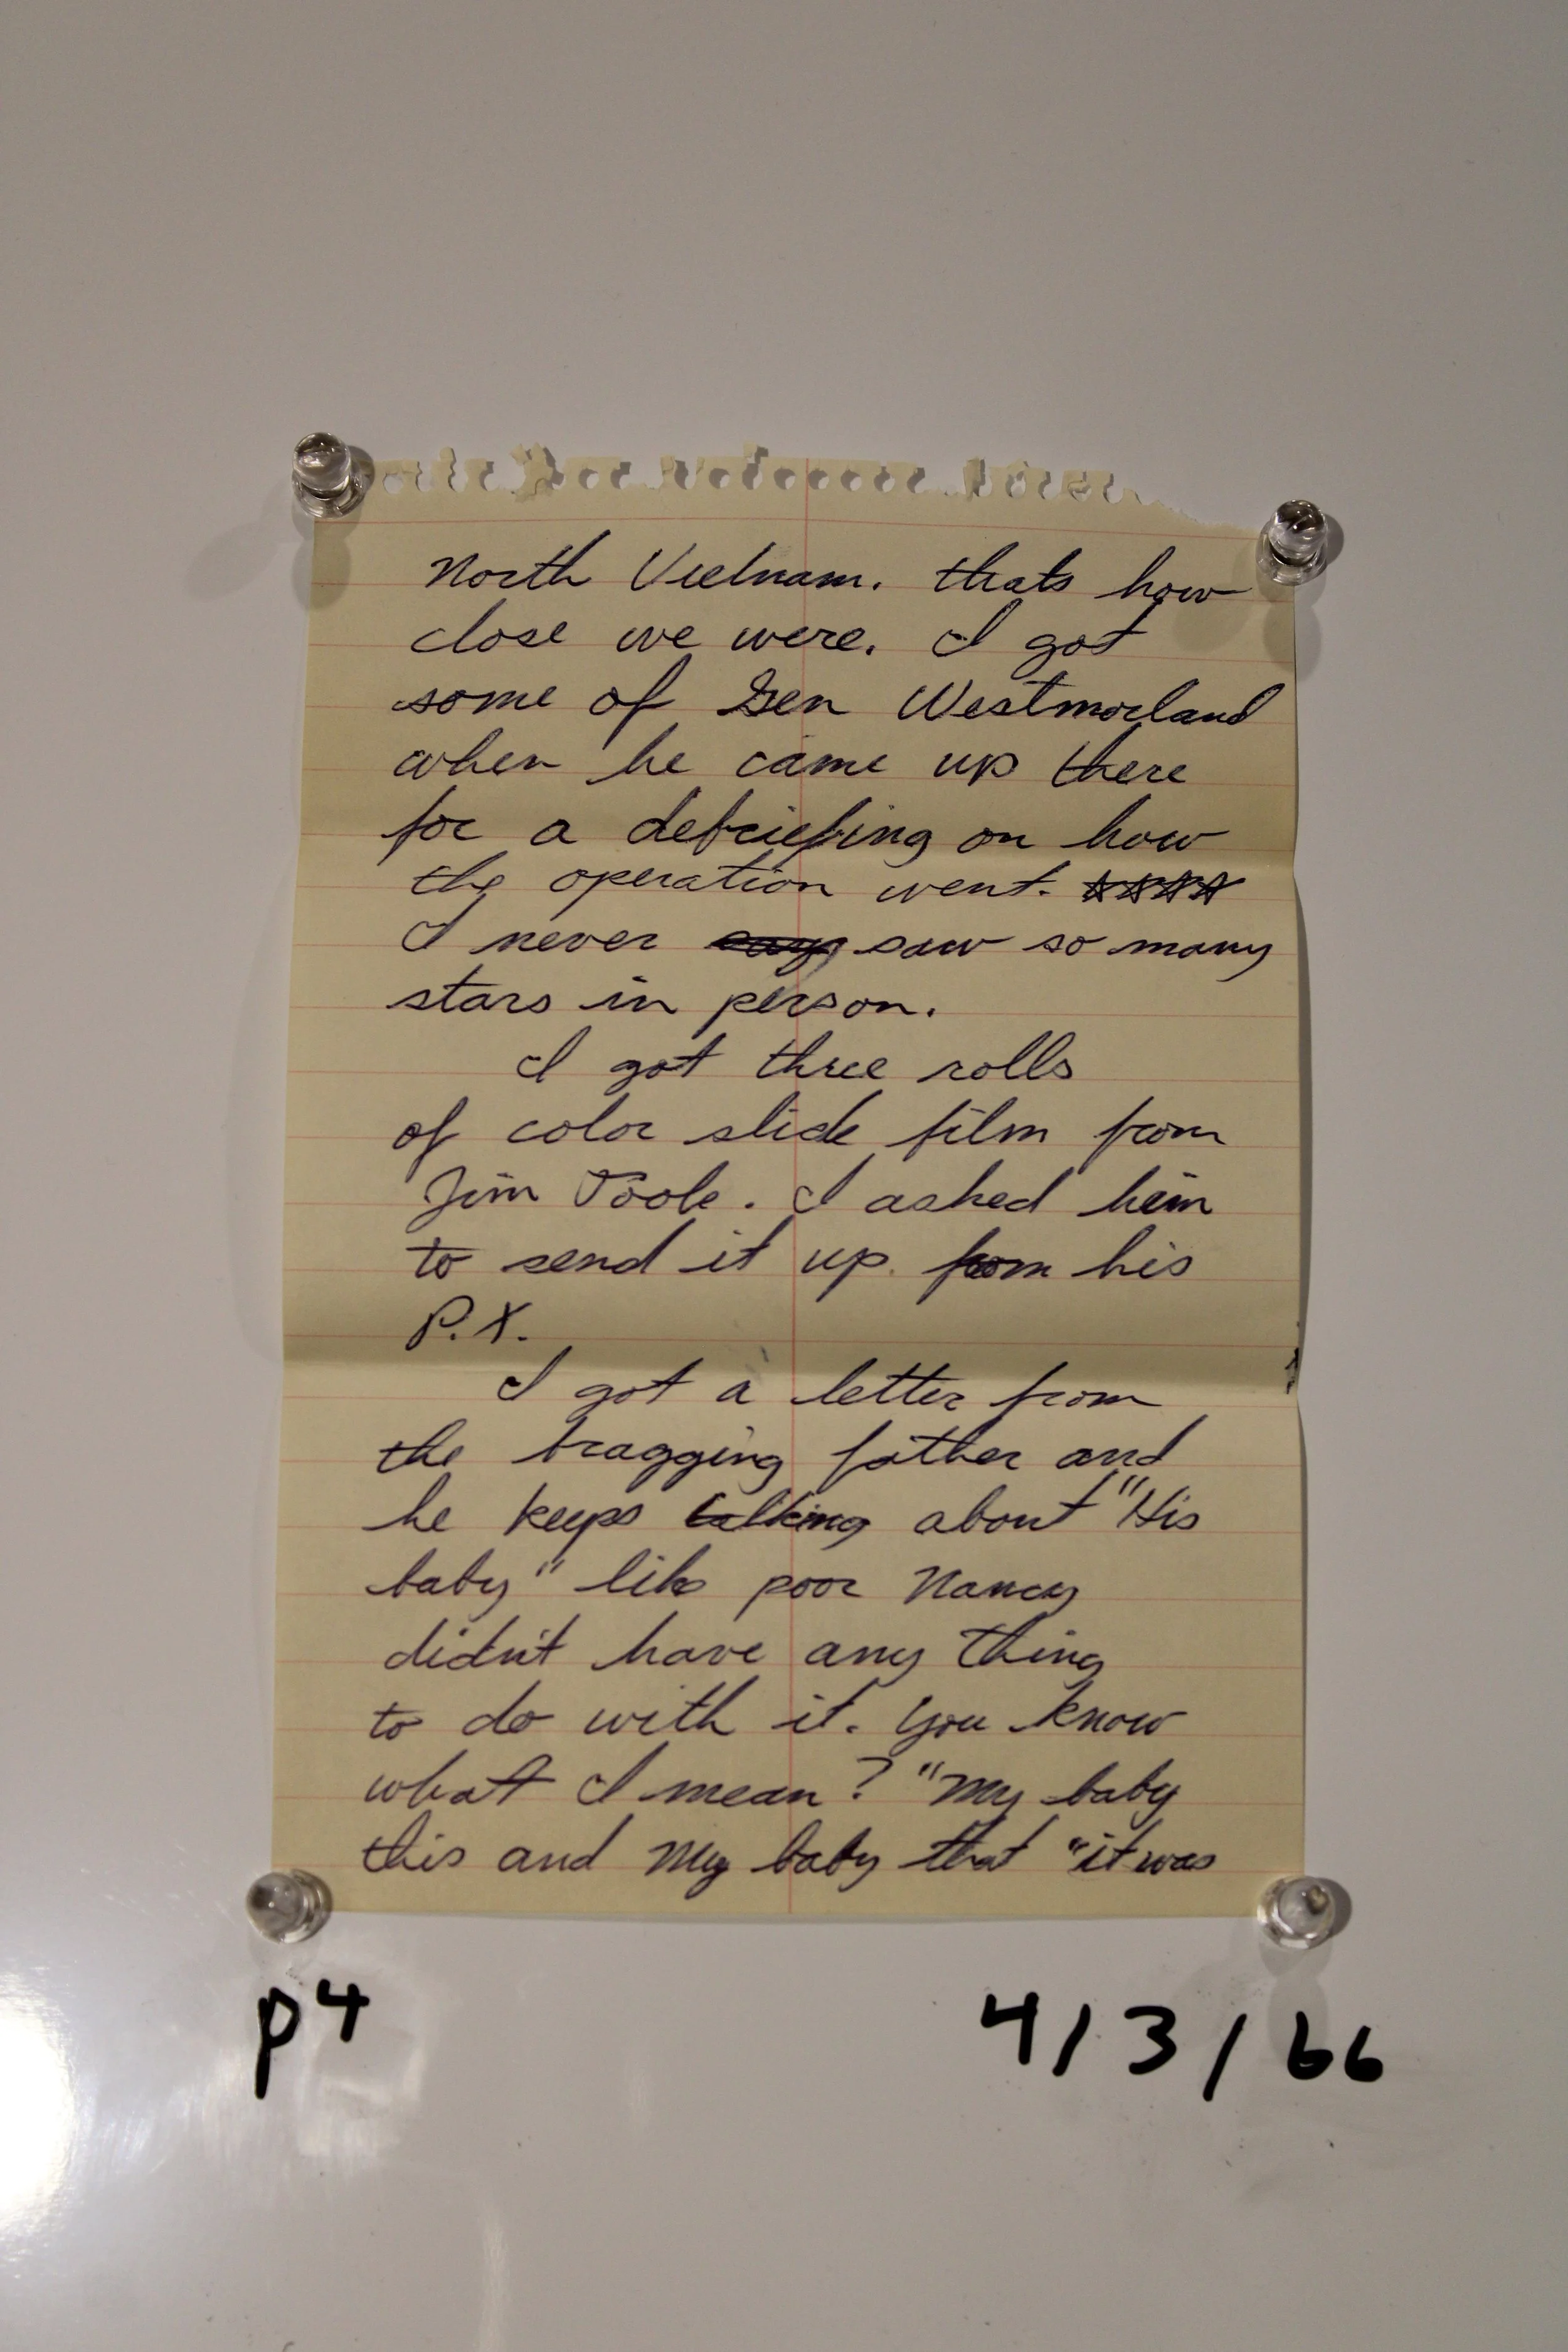 North Vietnam. thats how
close we were. I got
some of Gen Westmorland
when he came up there
for a debriefing on how
the operation went. ☆☆☆☆
I never saw so many
stars in person.
I got three rolls
of color slide film from
Jim Poole. I asked him
to send it up from his
P.X.
I got a letter from
the bragging father and
he keeps talking about "His
baby" like poor Nancy
didn't have any thing
to do with it. You know
what I mean? "My baby
this and My baby that "it was
p4
4/3/66